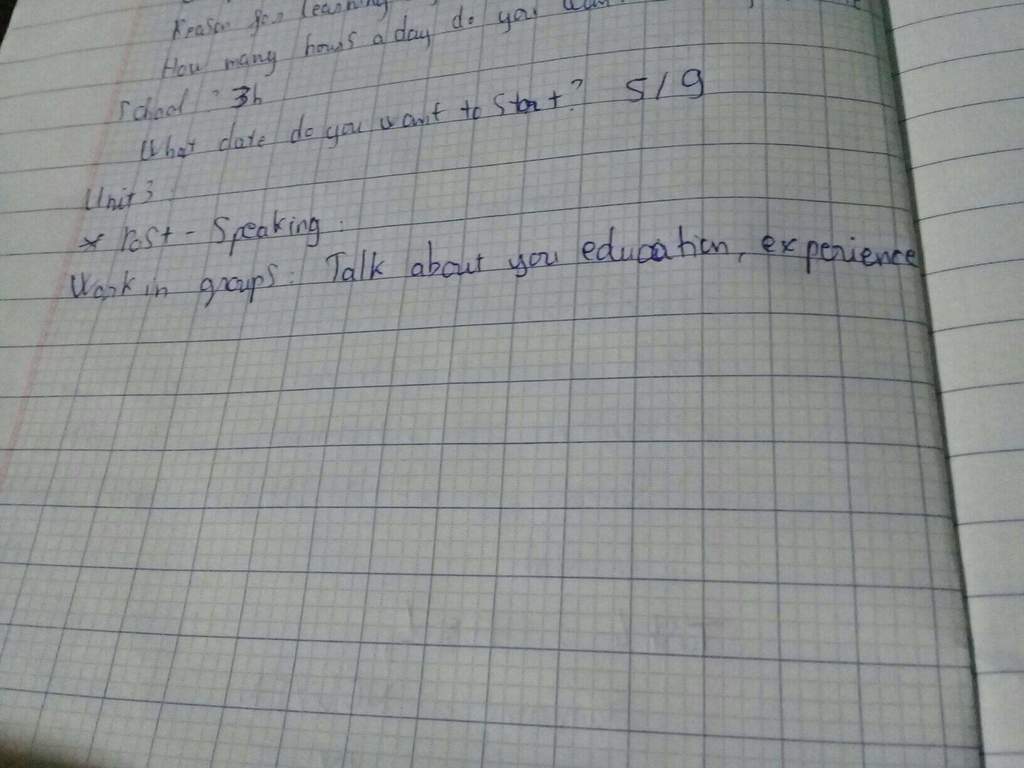 Reason for learning
How many hours a day do you
School : 3h
What date do you want to start? 5/9
Unit 3
* Post - Speaking :
Work in groups : Talk about you education, experience